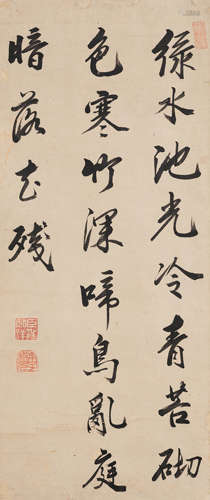 緑水池光冷青苔砌
色寒竹深啼鳥亂庭
暗落花殘